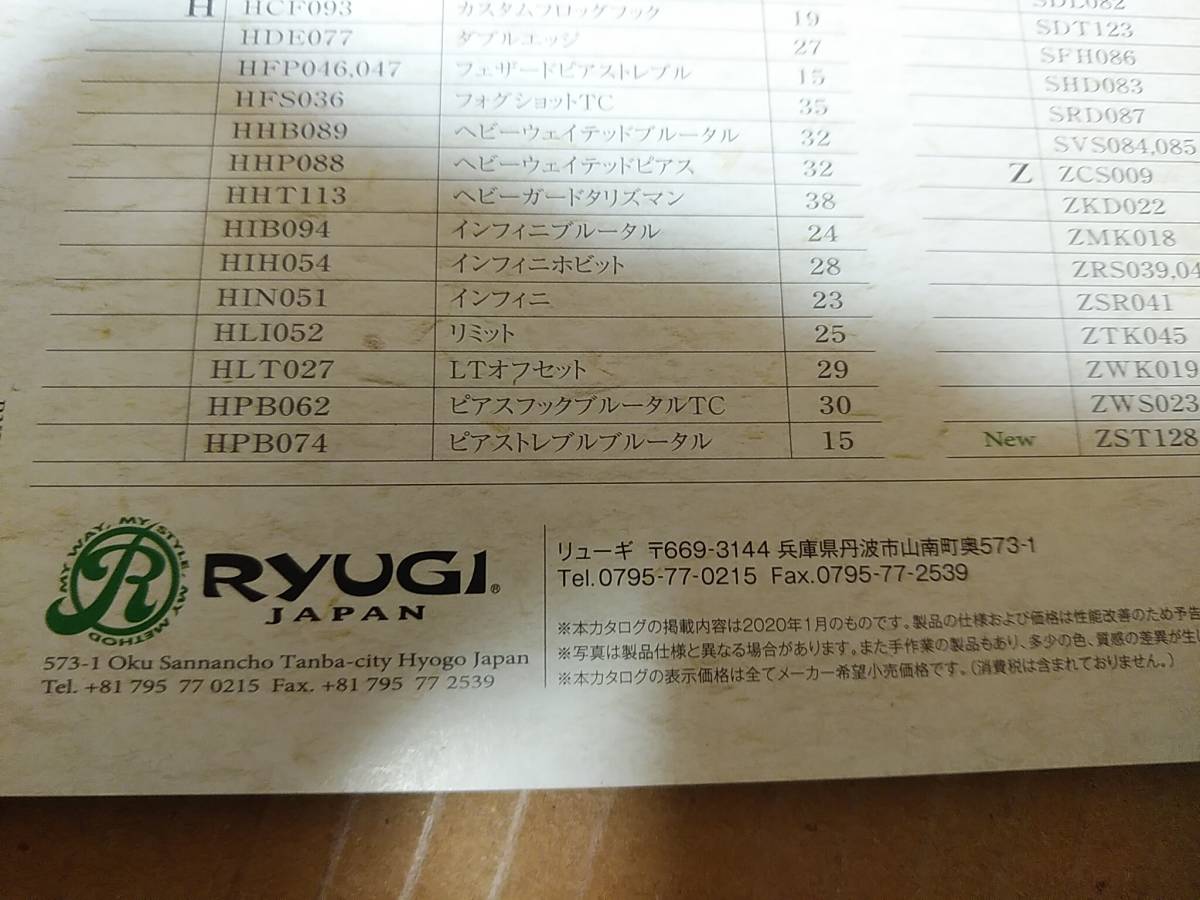 H HCF093 カスタムフロッグフック 19
HDE077 ダブルエッジ 27
HFP046,047 フェザードピアストレブル 15
HFS036 フォグショットTC 35
HHB089 ヘビーウェイテッドブルータル 32
HHP088 ヘビーウェイテッドピアス 32
HHT113 ヘビーガードタリズマン 38
HIB094 インフィニブルータル 24
HIH054 インフィニホビット 28
HIN051 インフィニ 23
HLI052 リミット 25
HLT027 LTオフセット 29
HPB062 ピアスフックブルータルTC 30
HPB074 ピアストレブルブルータル 15
SDL082
SDT123
SFH086
SHD083
SRD087
SVS084,085
Z ZCS009
ZKD022
ZMK018
ZRS039,04
ZSR041
ZTK045
ZWK019
ZWS023
New ZST128
MY WAY, MY STYLE, MY METHOD
R
RYUGI®
JAPAN
573-1 Oku Sannancho Tanba-city Hyogo Japan
Tel. +81 795 77 0215 Fax. +81 795 77 2539
リューギ 〒669-3144 兵庫県丹波市山南町奥573-1
Tel.0795-77-0215 Fax.0795-77-2539
※本カタログの掲載内容は2020年1月のものです。製品の仕様および価格は性能改善のため予告
※写真は製品仕様と異なる場合があります。また手作業の製品もあり、多少の色、質感の差異が生じ
※本カタログの表示価格は全てメーカー希望小売価格です。（消費税は含まれておりません。）